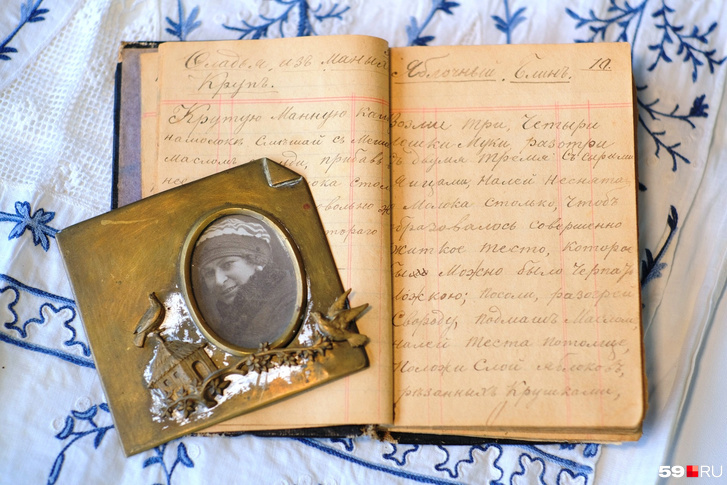 Оладьи, изъ Манныхъ
Крупъ.
Крутую Манную каш
на молокѣ Смѣшай съ
Масломъ прибавь
молока стол
довольно
Яблочный Блинъ. 19.
Возьми три, Четыри
Ложки Муки, разотри
съ двумя тремя Сырыми
Яицами, Налей Неснята
Молока столько, Чтобъ
образовалось совершенно
Житкое тесто, которое
Можно было Черпать
ложкою; Посли, разогрей
Сковроду, подмашъ Масломъ,
налей теста потомъ,
Положи Слой яблоковъ,
резанныхъ Кружками,
59.RU